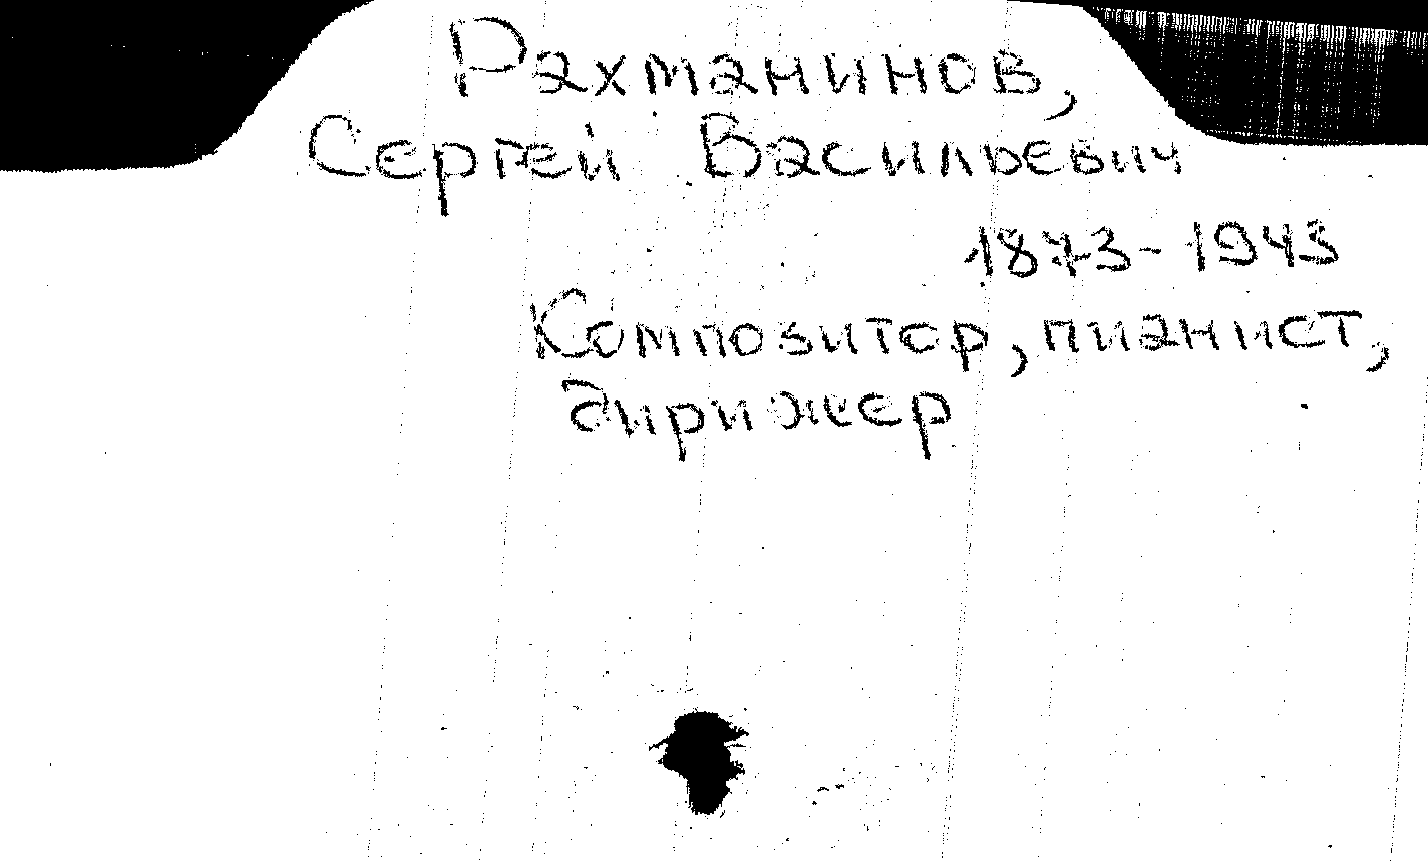 Рахманинов,
Сергей Васильевич
1873-1943
Композитор, пианист,
дирижер